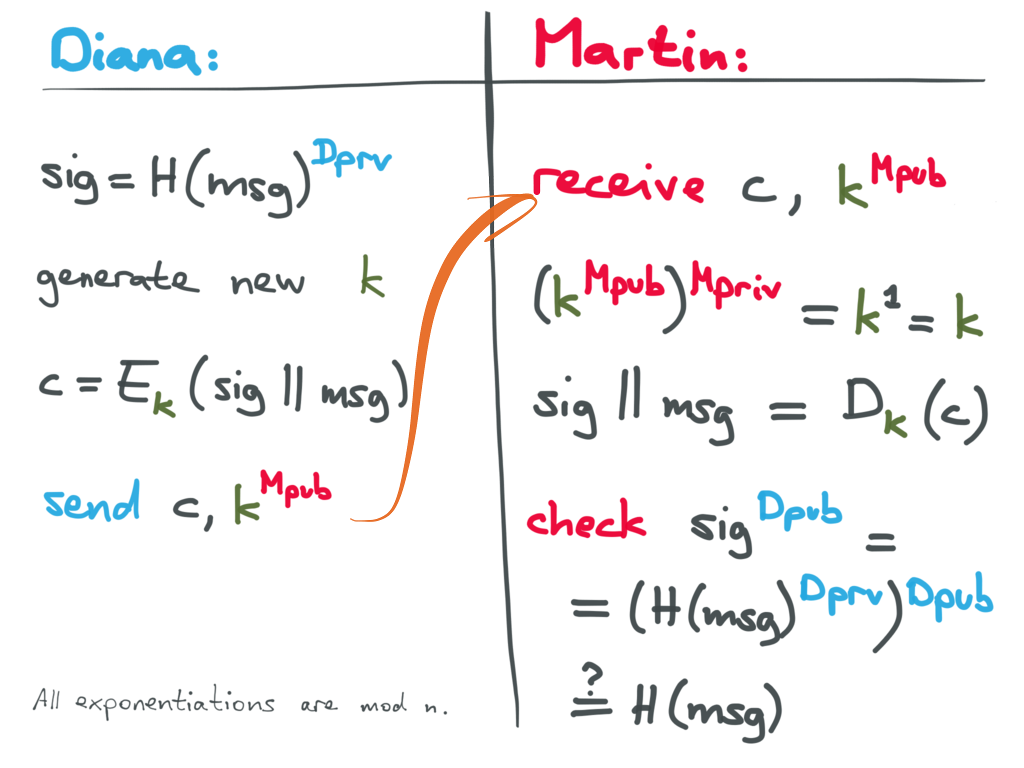 Diana:
sig = H(msg)^Dprv
generate new k
c = E_k (sig || msg)
send c, k^Mpub
All exponentiations are mod n.
Martin:
receive c, k^Mpub
(k^Mpub)^Mpriv = k^1 = k
sig || msg = D_k (c)
check sig^Dpub =
= (H(msg)^Dprv)^Dpub
≟ H(msg)